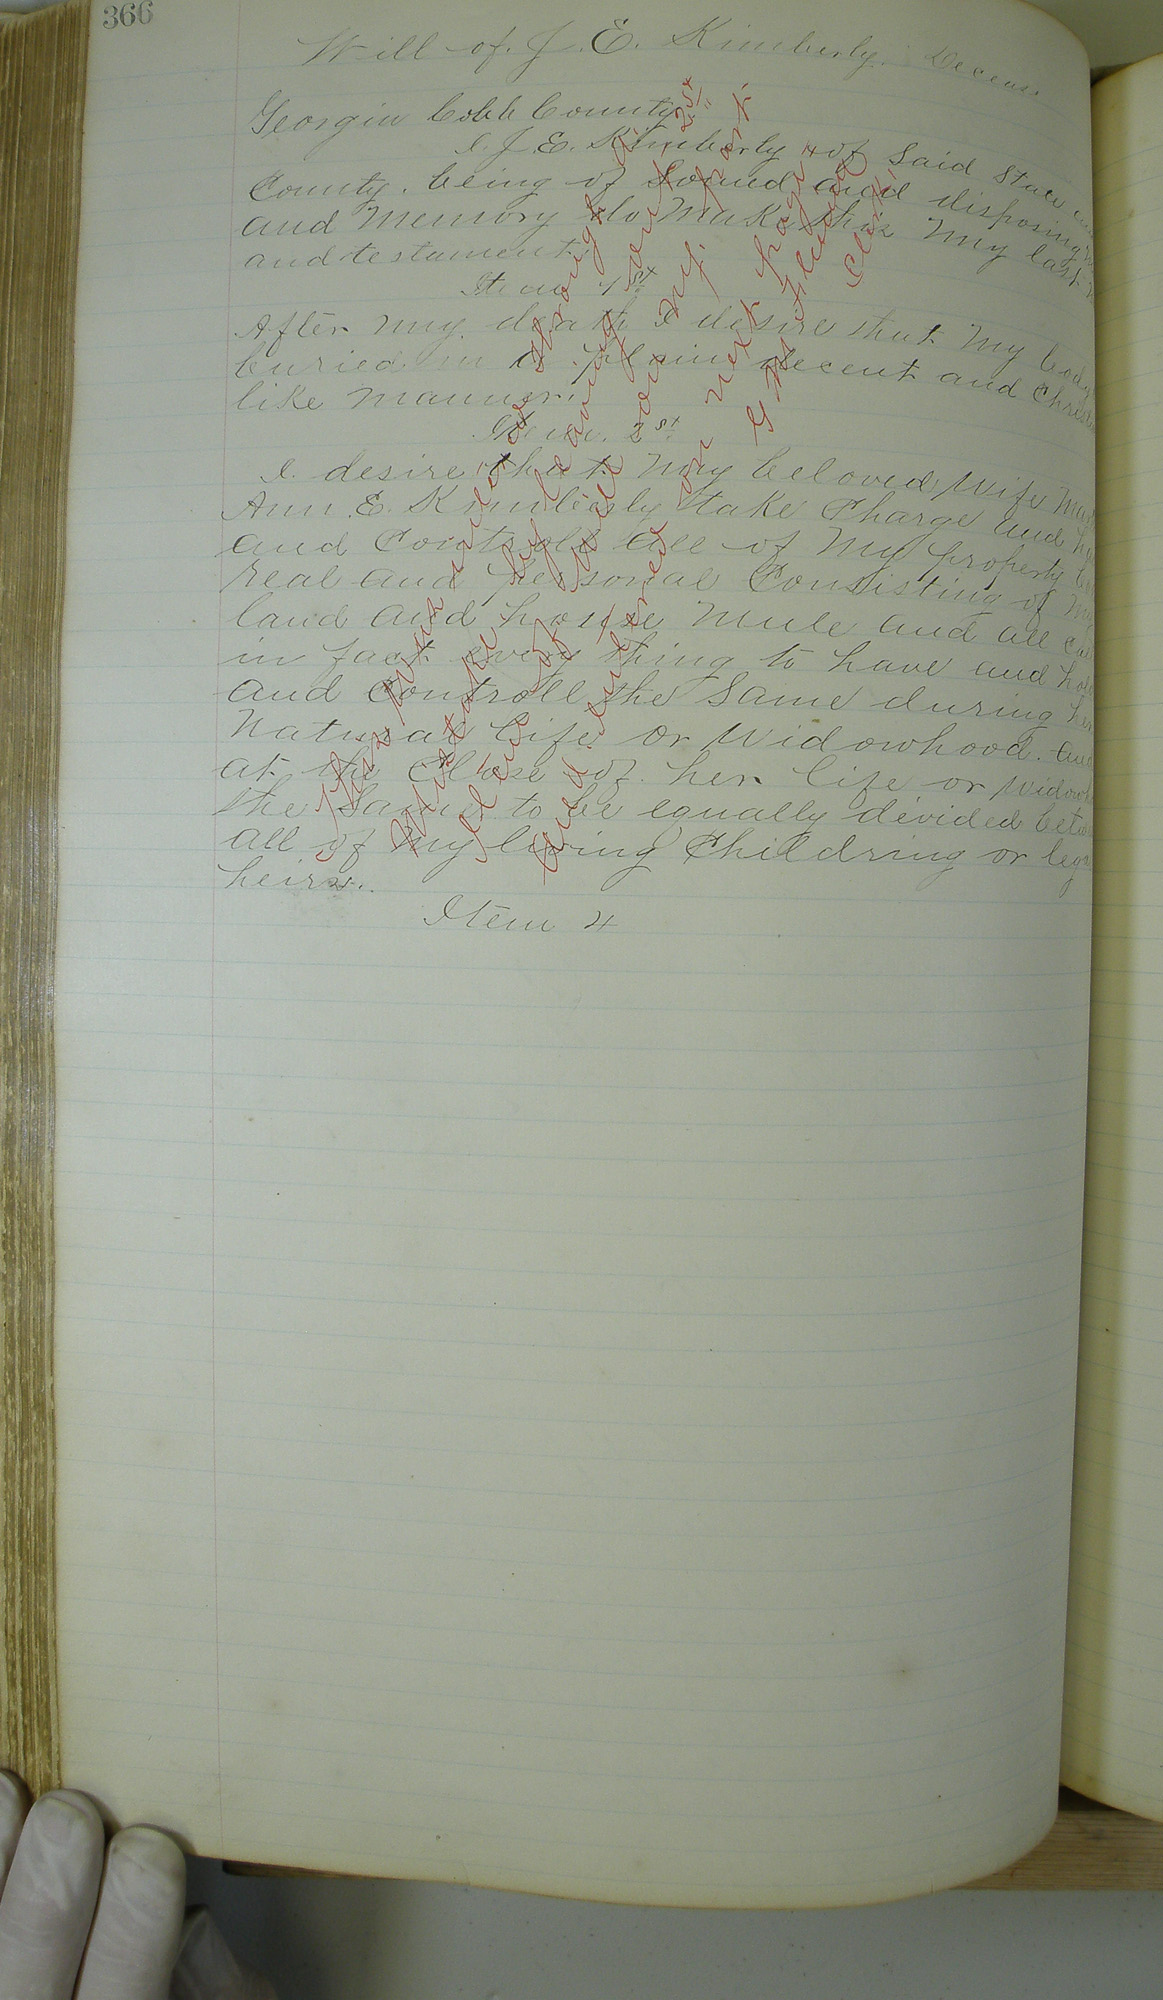 366
Will of J. E. Kimberly. Deceas
Georgia Cobb County
I. J. E. Kimberly of Said State
County. being of Sound and disposing
and Memory do Make this My last
and testament.
Item 1st
After my death I desire that My body
buried in a plain decent and Christ
like Manner.
Item. 2st
I desire that My beloved Wife
Ann. E. Kimberly take Charge and
and Controll all of My property
real and personal Consisting of
land and house Mule and all
in fact every thing to have and hold
and Controll the Same during her
Natural life or Widowhood. and
at the Close of her life or Widow
the Same to be equally divided betw
all of My living Childring or leg
heirs.
Item 4
This Was mised through a
Mistake by leaving out 2st
Item of Will on Mj. part.
and entered on next page
G M
Clerk.